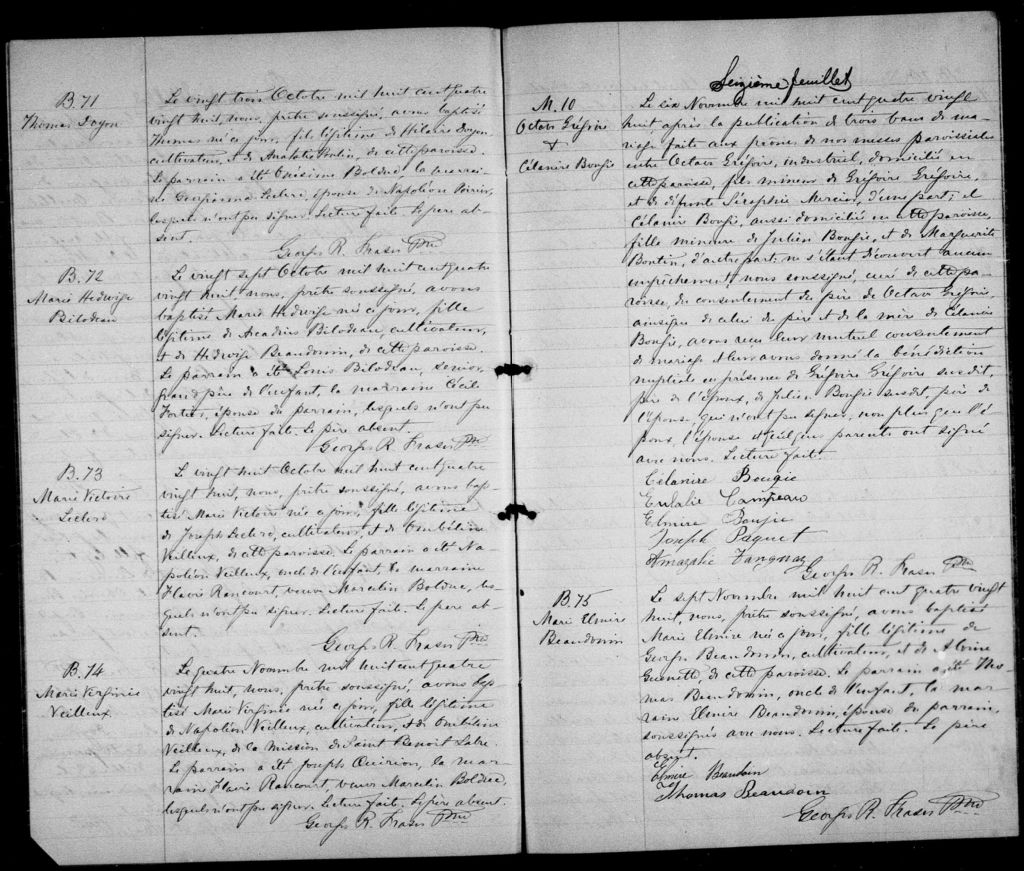 B.71
Thomas Doyon
Le vingt trois Octobre mil huit cent quatre
vingt huit, nous, prêtre soussigné, avons baptisé
Thomas né ce jour, fils légitime de Hilaire Doyon
cultivateur, et de Poulin, de cette paroisse.
Le parrain a été Onésime Bolduc, la marrai-
ne Georgianna Leclerc, épouse de Napoléon Poirier,
lesquels n'ont pu signer. Lecture faite. Le père ab-
sent.
Georges R. Fraser Ptre
B.72
Marie Hedwige
Bilodeau
Le vingt sept Octobre mil huit cent quatre
vingt huit, nous, prêtre soussigné, avons
baptisé Marie Hedwige née ce jour, fille
légitime de Arcadius Bilodeau, cultivateur,
et de Hedwige Beaudouin, de cette paroisse.
Le parrain a été Louis Bilodeau, senior,
grand père de l'enfant, la marraine Cécile
Fortier, épouse du parrain, lesquels n'ont pu
signer. Lecture faite. Le père absent.
Georges R. Fraser Ptre
B.73
Marie Victoire
Leclerc
Le vingt huit Octobre mil huit cent quatre
vingt huit, nous, prêtre soussigné, avons bap-
tisé Marie Victoire née ce jour, fille légitime
de Joseph Leclerc, cultivateur, et de Ombéline
Veilleux, de cette paroisse. Le parrain a été Na-
poléon Veilleux, oncle de l'enfant, la marraine
Flavie Rancourt, veuve Marcelin Bolduc, les-
quels n'ont pu signer. Lecture faite. Le père ab-
sent.
Georges R. Fraser Ptre
B.74
Marie Virginie
Veilleux
Le quatre Novembre mil huit cent quatre
vingt huit, nous, prêtre soussigné, avons bap-
tisé Marie Virginie née ce jour, fille légitime
de Napoléon Veilleux, cultivateur, et de Ombéline
Veilleux, de la mission de Saint Benoit Labre.
Le parrain a été Joseph Quirion, la mar-
raine Flavie Rancourt, veuve Marcelin Bolduc,
lesquels n'ont pu signer. Lecture faite. Le père absent.
Georges R. Fraser Ptre
Seizième feuillet
M. 10
Octave Grégoire
&
Célanire Bougie
Le six Novembre mil huit cent quatre vingt
huit, après la publication de trois bans de ma-
riage faite aux prônes de nos messes paroissiales
entre Octave Grégoire, industriel, domicilié en
cette paroisse, fils mineur de Grégoire Grégoire,
et de défunte Séraphie Mercier, d'une part; et
Célanire Bougie, aussi domiciliée en cette paroisse,
fille mineure de Julien Bougie, et de Marguerite
Boutin, d'autre part; ne s'étant découvert aucun
empêchement nous soussigné, curé de cette pa-
roisse, du consentement du père de Octave Grégoire,
ainsi que de celui du père et de la mère de Célanire
Bougie, avons reçu leur mutuel consentement
de mariage & leur avons donné la bénédiction
nuptiale en présence de Grégoire Grégoire susdit,
père de l'époux, de Julien Bougie susdit, père de
l'épouse, qui n'ont pu signer, non plus que l'é-
poux, l'épouse & quelques parents ont signé
avec nous. Lecture faite.
Célanire Bougie
Eulalie Campeau
Elmire Boujie
Joseph Paquet
Amazalie
Georges R. Fraser Ptre
B.75
Marie Elmire
Beaudouin
Le sept Novembre mil huit cent quatre vingt
huit, nous, prêtre soussigné, avons baptisé
Marie Elmire née ce jour, fille légitime de
Georges Beaudouin, cultivateur, et de Alvine
de cette paroisse. Le parrain a été Tho-
mas Beaudouin, oncle de l'enfant, la mar-
raine Elmire Beaudouin, épouse du parrain,
soussignés avec nous. Lecture faite. Le père
absent.
Elmire Beaudoin
Thomas Beaudoin
Georges R. Fraser Ptre